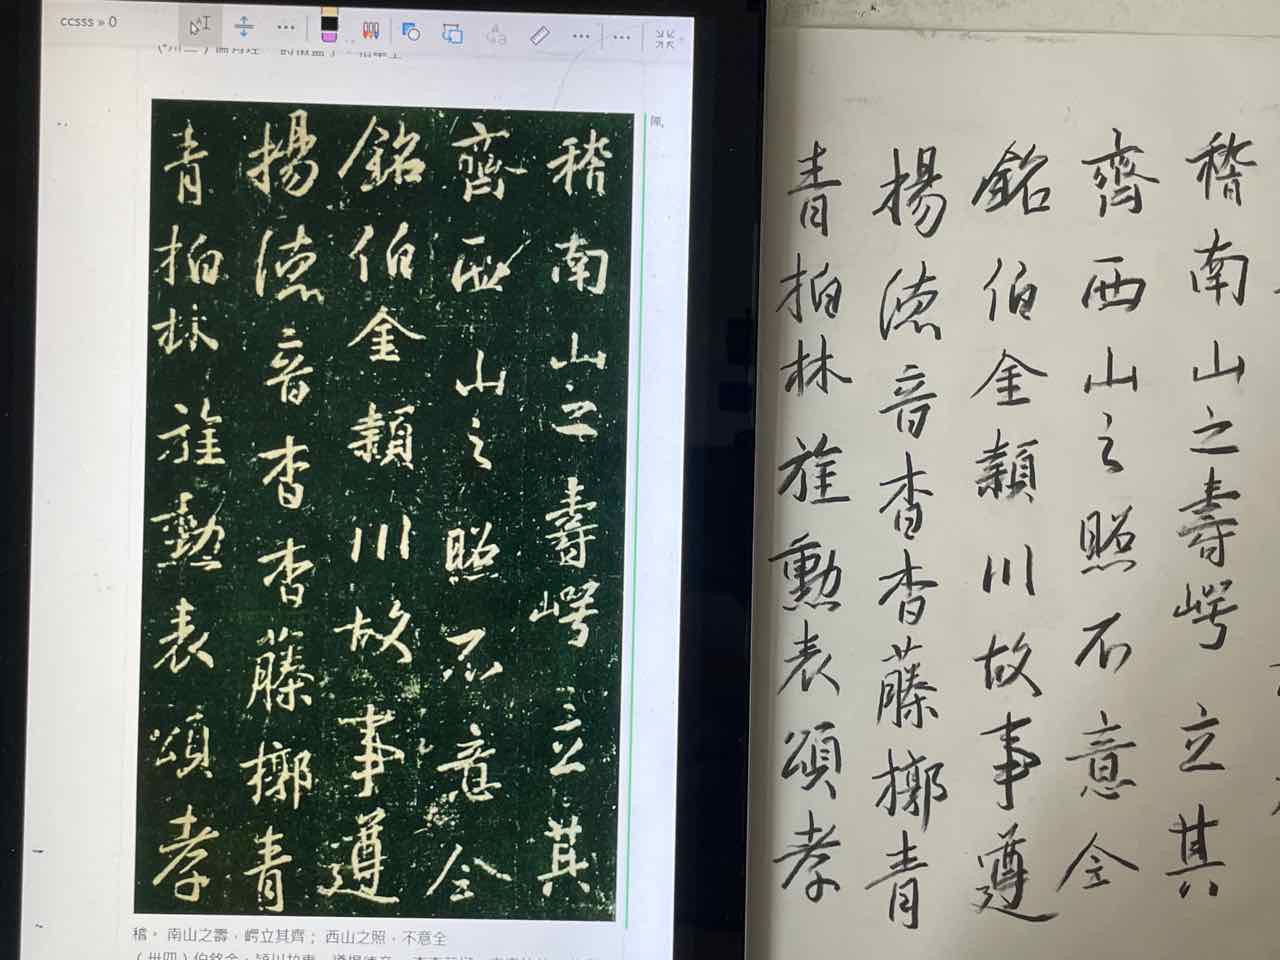 ccsss » 0
稽南山之壽崿立其
齊西山之照不意全
銘伯金穎川故事遵
揚德音杳杳藤槨青
青柏林旌勳表頌孝
稽。南山之壽，崿立其齊；西山之照，不意全
稽南山之壽崿立其
齊西山之照不意全
銘伯金穎川故事遵
揚德音杳杳藤槨青
青柏林旌勳表頌孝